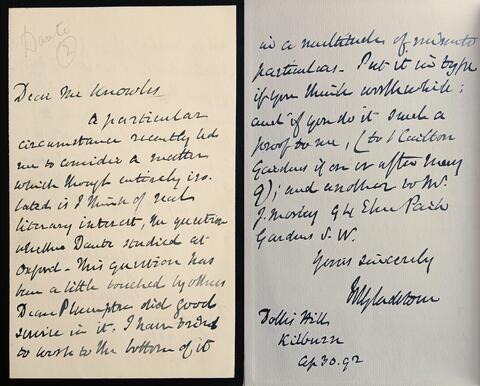 Dante
2
Dear Mr Knowles
A particular
circumstance recently led
me to consider a matter
which though entirely iso
lated is I think of real
literary interest, the question
whether Dante studied at
Oxford. This question has
been a little touched by others
Dean Plumptre did good
service in it. I have tried
to work to the bottom of it
in a multitude of minute
particulars. Put it in type
if you think worth while;
and if you do it send a
proof to me, (to 1 Carlton
Gardens if on or after May
9); and another to Mr.
J. Morley 94 Elm Park
Gardens S.W.
Yours sincerely
WEGladstone
Dollis Hill
Kilburn
Ap 30. 92